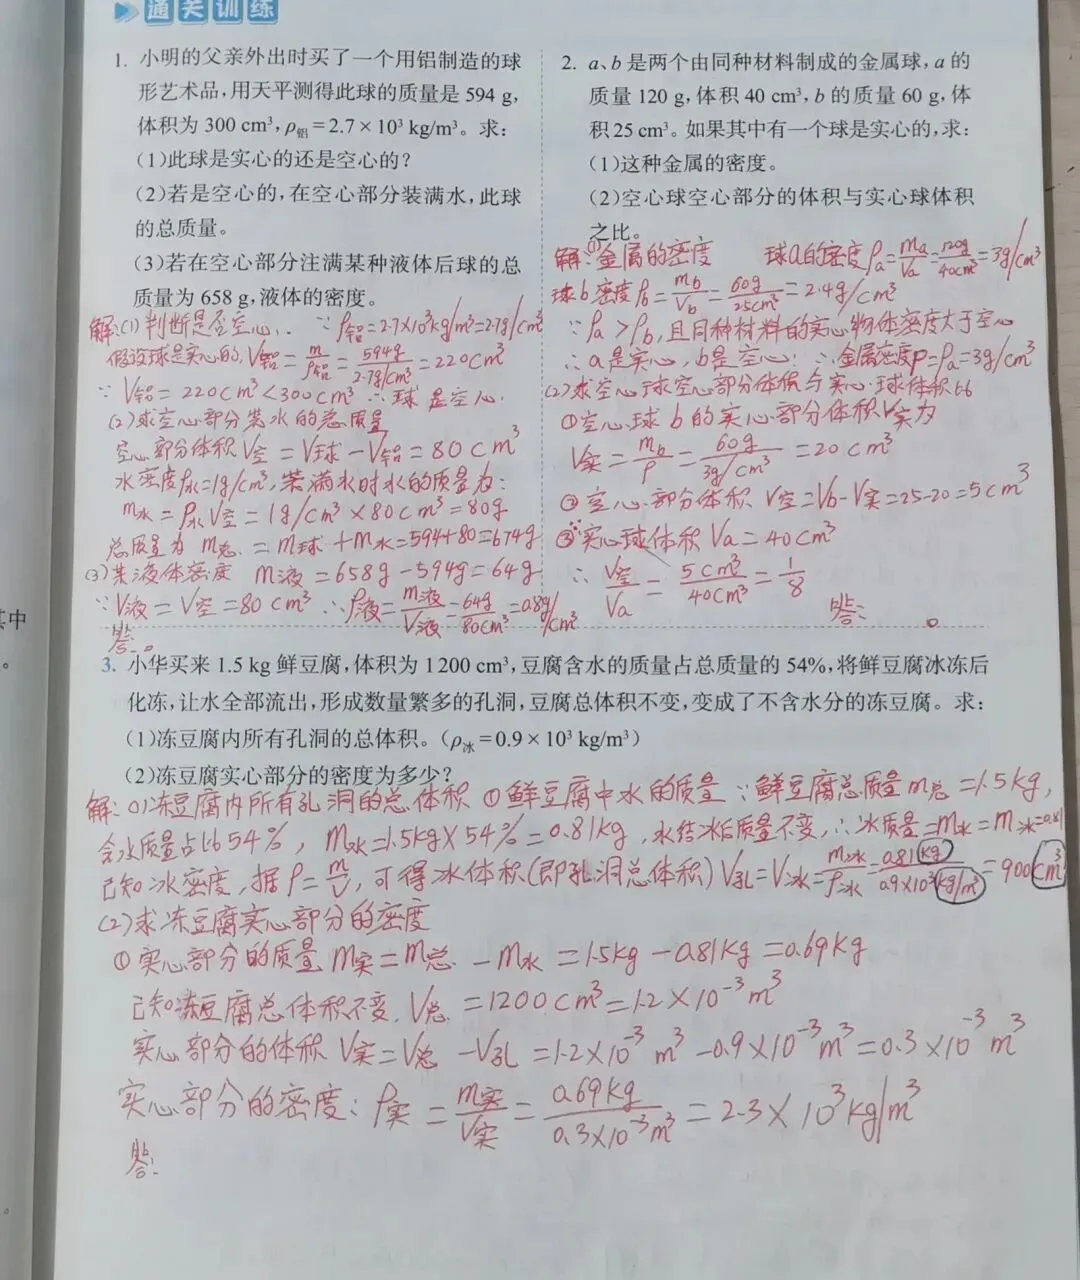 通关训练
1. 小明的父亲外出时买了一个用铝制造的球
形艺术品,用天平测得此球的质量是 594 g,
体积为 300 cm³,ρ铝=2.7×10³ kg/m³。求:
(1)此球是实心的还是空心的?
(2)若是空心的,在空心部分装满水,此球
的总质量。
(3)若在空心部分注满某种液体后球的总
质量为 658 g,液体的密度。
解:(1)判断是否空心.. ∵ρ铝=2.7×10³kg/m³=2.7g/cm³
假设球是实心的,V铝=m/ρ铝=594g/2.7g/cm³=220cm³
∵V铝=220cm³<300cm³∴球是空心.
(2)求空心部分装水的总质量
空心部分体积V空=V球-V铝=80cm³
水密度ρ水=1g/cm³,装满水时水的质量为:
m水=ρ水V空=1g/cm³×80cm³=80g
总质量为 m总=m球+m水=594+80=674g
(3)某液体密度 m液=658g-594g=64g
∵V液=V空=80cm³∴ρ液=m液/V液=64g/80cm³=0.8g/cm³
答:。
2. a、b 是两个由同种材料制成的金属球,a 的
质量 120 g,体积 40 cm³,b 的质量 60 g,体
积 25 cm³。如果其中有一个球是实心的,求:
(1)这种金属的密度。
(2)空心球空心部分的体积与实心球体积
之比。
解:(1)金属的密度 球a的密度ρa=ma/Va=120g/40cm³=3g/cm³
球b密度ρb=mb/Vb=60g/25cm³=2.4g/cm³
∵ρa>ρb,且同种材料的实心物体密度大于空心
∴a是实心,b是空心.∴金属密度ρ=ρa=3g/cm³
(2)求空心球空心部分体积与实心球体积比
①空心球b的实心部分体积V实为
V实=mb/ρ=60g/3g/cm³=20cm³
②空心部分体积 V空=Vb-V实=25-20=5cm³
③∵实心球体积Va=40cm³
∴V空/Va=5cm³/40cm³=1/8
答: 。
其中
。
3. 小华买来 1.5 kg 鲜豆腐,体积为 1 200 cm³,豆腐含水的质量占总质量的 54%,将鲜豆腐冰冻后
化冻,让水全部流出,形成数量繁多的孔洞,豆腐总体积不变,变成了不含水分的冻豆腐。求:
(1)冻豆腐内所有孔洞的总体积。(ρ冰=0.9×10³ kg/m³)
(2)冻豆腐实心部分的密度为多少?
解:(1)冻豆腐内所有孔洞的总体积 ①鲜豆腐中水的质量∵鲜豆腐总质量m总=1.5kg,
含水质量占比54%,m水=1.5kg×54%=0.81kg,水结冰后质量不变,∴冰质量=m水=m冰=0.81
已知冰密度,据ρ=m/V,可得冰体积(即孔洞总体积)V孔=V冰=m冰/ρ冰=0.81kg/0.9×10³kg/m³=900cm³
(2)求冻豆腐实心部分的密度
①实心部分的质量m实=m总-m水=1.5kg-0.81kg=0.69kg
已知冻豆腐总体积不变,V总=1200cm³=1.2×10⁻³m³
实心部分的体积V实=V总-V孔=1.2×10⁻³m³-0.9×10⁻³m³=0.3×10⁻³m³
实心部分的密度:ρ实=m实/V实=0.69kg/0.3×10⁻³m³=2.3×10³kg/m³
答: